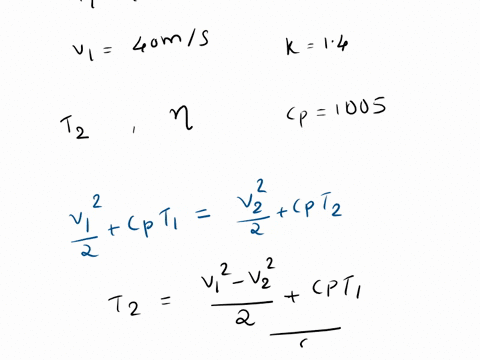 v₁ = 40m/s    k = 1.4
T₂ , η    Cp = 1005
v₁²/2 + CpT₁ = v₂²/2 + CpT₂
T₂ = (v₁² - v₂²)/2 + CpT₁